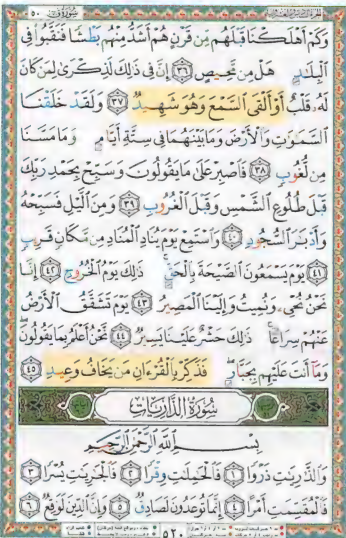 سُورَةُ قٓ ٥٠
وَكَمْ أَهْلَكْنَا قَبْلَهُم مِّن قَرْنٍ هُمْ أَشَدُّ مِنْهُم بَطْشًا فَنَقَّبُوا۟ فِى
ٱلْبِلَٰدِ هَلْ مِن مَّحِيصٍ ٣٦ إِنَّ فِى ذَٰلِكَ لَذِكْرَىٰ لِمَن كَانَ
لَهُۥ قَلْبٌ أَوْ أَلْقَى ٱلسَّمْعَ وَهُوَ شَهِيدٌ ٣٧ وَلَقَدْ خَلَقْنَا
ٱلسَّمَٰوَٰتِ وَٱلْأَرْضَ وَمَا بَيْنَهُمَا فِى سِتَّةِ أَيَّامٍ وَمَا مَسَّنَا
مِن لُّغُوبٍ ٣٨ فَٱصْبِرْ عَلَىٰ مَا يَقُولُونَ وَسَبِّحْ بِحَمْدِ رَبِّكَ
قَبْلَ طُلُوعِ ٱلشَّمْسِ وَقَبْلَ ٱلْغُرُوبِ ٣٩ وَمِنَ ٱلَّيْلِ فَسَبِّحْهُ
وَأَدْبَٰرَ ٱلسُّجُودِ ٤٠ وَٱسْتَمِعْ يَوْمَ يُنَادِ ٱلْمُنَادِ مِن مَّكَانٍ قَرِيبٍ
٤١ يَوْمَ يَسْمَعُونَ ٱلصَّيْحَةَ بِٱلْحَقِّ ذَٰلِكَ يَوْمُ ٱلْخُرُوجِ ٤٢ إِنَّا
نَحْنُ نُحْىِۦ وَنُمِيتُ وَإِلَيْنَا ٱلْمَصِيرُ ٤٣ يَوْمَ تَشَقَّقُ ٱلْأَرْضُ
عَنْهُمْ سِرَاعًا ذَٰلِكَ حَشْرٌ عَلَيْنَا يَسِيرٌ ٤٤ نَّحْنُ أَعْلَمُ بِمَا يَقُولُونَ
وَمَآ أَنتَ عَلَيْهِم بِجَبَّارٍ فَذَكِّرْ بِٱلْقُرْءَانِ مَن يَخَافُ وَعِيدِ ٤٥
سُورَةُ ٱلذَّارِيَاتِ
بِسْمِ ٱللَّهِ ٱلرَّحْمَٰنِ ٱلرَّحِيمِ
وَٱلذَّٰرِيَٰتِ ذَرْوًا ١ فَٱلْحَٰمِلَٰتِ وِقْرًا ٢ فَٱلْجَٰرِيَٰتِ يُسْرًا ٣
فَٱلْمُقَسِّمَٰتِ أَمْرًا ٤ إِنَّمَا تُوعَدُونَ لَصَادِقٌ ٥ وَإِنَّ ٱلدِّينَ لَوَٰقِعٌ ٦
٥٢٠